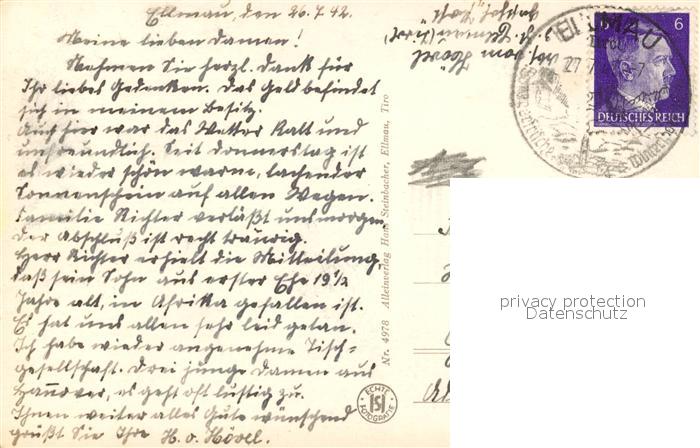 Ellmau, den 26.7.42.
Meine lieben Damen!
Nehmen Sie herzl. Dank für
Ihr liebes Gedenken. Das Geld befindet
sich in meinem Besitz.
Auch hier war das Wetter kalt und
unfreundlich. Seit Donnerstag ist
es wieder schön warm, lachender
Sonnenschein auf allen Wegen.
Familie Richter verläßt uns morgen,
der Abschluß ist recht traurig.
Herr Richter erhielt die Mitteilung,
daß sein Sohn aus erster Ehe 19 1/2
Jahre alt, in Afrika gefallen ist.
Es hat uns allen sehr leid getan.
Ich habe wieder angenehme Tisch-
gesellschaft. Drei junge Damen aus
Hannover, es geht oft lustig zu.
Ihnen weiter alles Gute wünschend
grüßt Sie Ihre H. v. Hövel.
Abs. von Hövel
ELLMAU
27
6
DEUTSCHES REICH
Nr. 4978 Alleinverlag Hans Steinbacher, Ellmau, Tiro
ECHTE
FOTOGRAFIE
privacy protection
Datenschutz